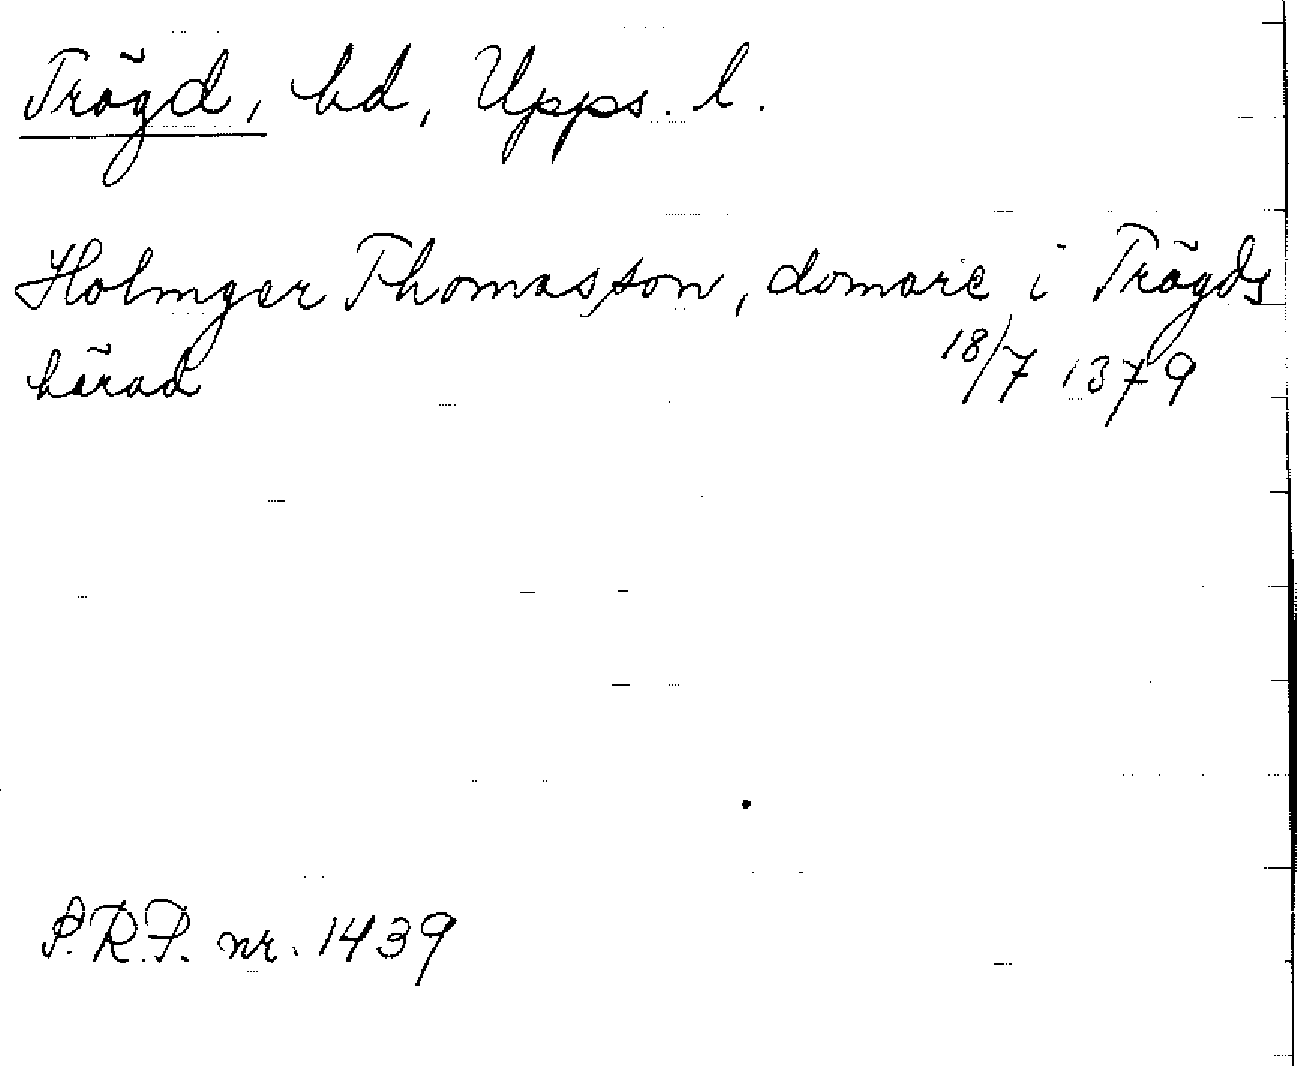 Trögd, hd, Upps. l.
Holmger Thomasson, domare i Trögds
härad 18/7 1379
P.R.P. nr. 1439